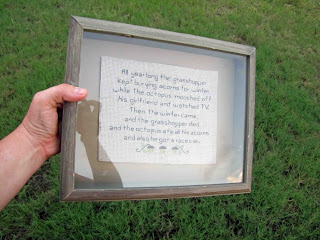 All year long the grasshopper
kept burying acorns for winter,
while the octopus mooched off
his girlfriend and watched TV.
Then the winter came,
and the grasshopper died,
and the octopus ate all his acorns
and also he got a racecar.